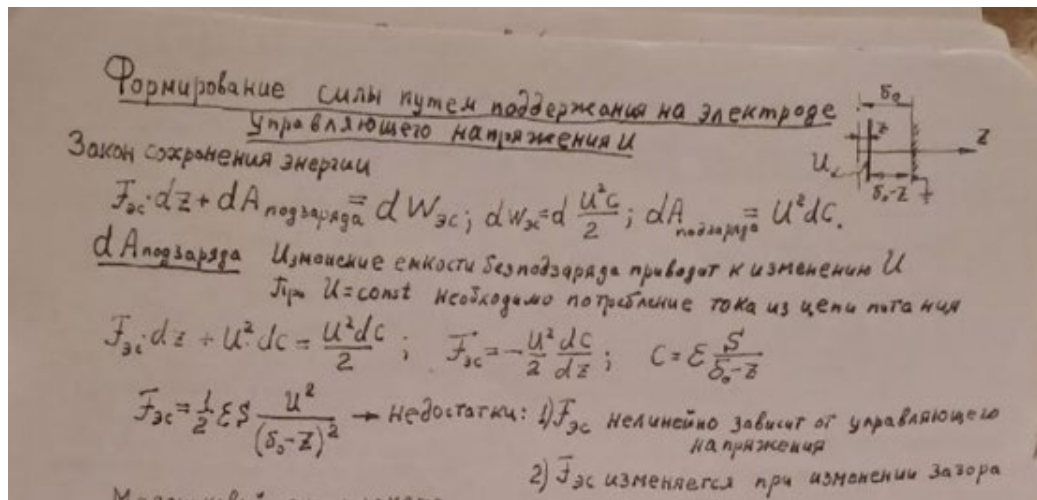 Формирование силы путем поддержания на электроде
управляющего напряжения U
Закон сохранения энергии
δ₀
z
Z
U
δ₀-Z
Fэс·dz + dA подзаряда = dWэс; dWэс = d U²C/2; dA подзаряда = U²dC.
dA подзаряда Изменение емкости без подзаряда приводит к изменению U
При U=const необходимо потребление тока из цепи питания
Fэс·dz + U²·dC = U²dC/2; Fэс = -U²/2 dC/dz; C = ε S/(δ₀-Z)
Fэс = 1/2 εS U²/(δ₀-Z)² → недостатки: 1) Fэс нелинейно зависит от управляющего
напряжения
2) Fэс изменяется при изменении зазора